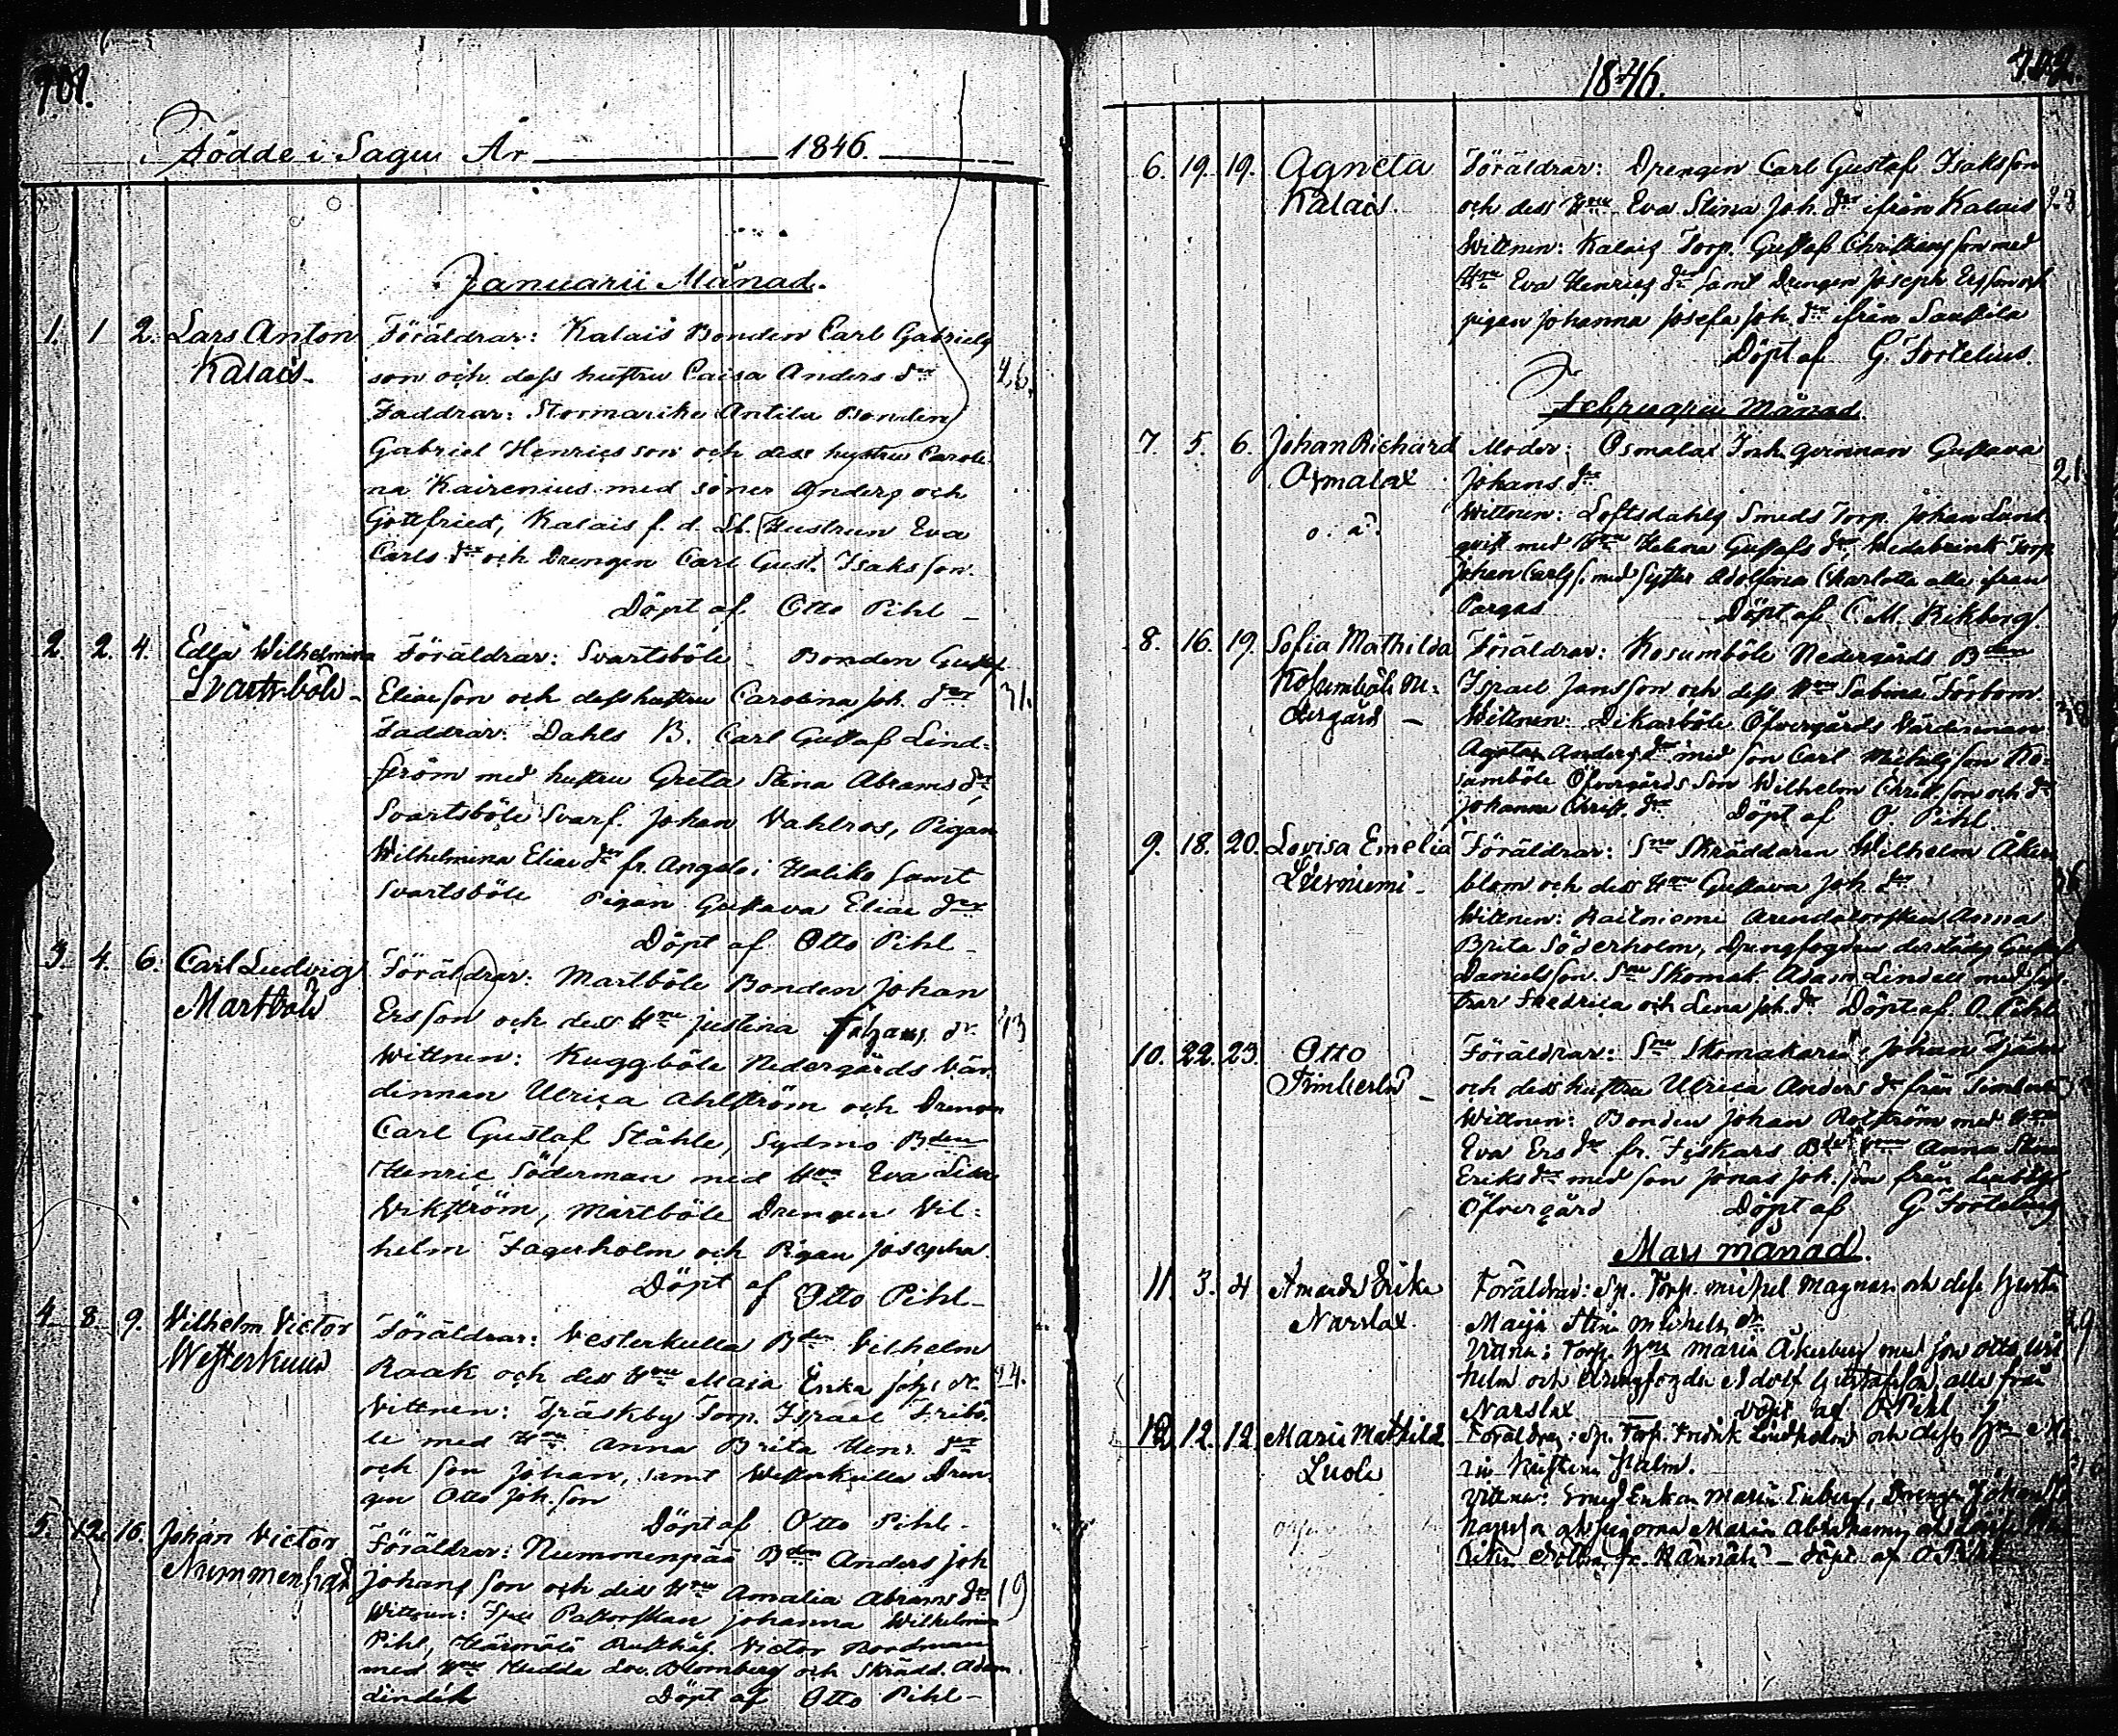 701.
Födde i Sagu År 1846.
Januarii Månad.
1. 1 2. Lars Anton Föräldrar: Kalais Bonden Carl Gabriels
Kalais. son och dess hustru Caisa Anders dr 26.
Faddrar: Stormarike Antila Bonden
Gabriel Henricsson och dess hustru Caroli-
na Kairenius med söner Anders och
Gottfried, Kalais f. d. Hustrun Eva
Carls dr och Drengen Carl Gust. Isaksson.
Döpt af Otto Pihl
2. 2. 4. Edla Wilhelmina Föräldrar: Svartsböle Bonden Gustaf
Svartsböle Eliæson och dess hustru Carolina Joh. dr 31.
Faddrar: Dahls B. Carl Gustaf Lind-
ström med hustru Greta Stina Abrams dr
Svartsböle Svarf. Johan Vahlros, Pigan
Wilhelmina Eliæ dr fr. Angelo i Haliko samt
Svartsböle Pigan Gustava Eliæ dr
Döpt af Otto Pihl
3. 4. 6. Carl Ludvig Föräldrar: Martböle Bonden Johan
Martböle Ersson och dess Hru Justina Johans dr 43
Wittnen: Kuggböle Nedergårds Vär-
dinnan Ulrica Ahlström och Drengen
Carl Gustaf Ståhle, Sydmo Bden
Henric Söderman med Hru Eva Lena
Wikström, Mårtböle Drengen Vil-
helm Fagerholm och Pigan Josepha
Döpt af Otto Pihl
4. 8. 9. Vilhelm Victor Föräldrar: Vesterkulla Bden Vilhelm
Westerkulla Raak och dess Hru Maja Erika Johs dr 24.
Vittnen: Träskby Torp. Israel Fribö-
le med Hru Anna Brita Henr. dr
och son Johan, samt Westerkulla Dren-
gen Otto Joh.son
Döpt af Otto Pihl
5. 12. 16. Johan Victor Föräldrar: Nummenpää Bden Anders Joh
Nummenpää Johans son och dess Hru Amalia Abrams dr 19
Wittnen: Pastorskan Johanna Wilhelmina
Pihl, Härmälä Rusthål. Victor Nordman
med Hru Hedda Lov. Blomberg och Skrädd. Adam
Lindél Döpt af Otto Pihl
1846. 702.
6. 19. 19. Agneta Föräldrar: Drengen Carl Gustaf Isaksson
Kalais. och dess Hru Eva Stina Joh. dr ifrån Kalais 28
Wittnen: Kalais Torp. Gustaf Christiansson med
Hru Eva Henrics dr samt Drengen Joseph Ersson och
pigan Johanna Josefa Joh. dr ifrån Saustila
Döpt af G. Fortelius.
Februarii Månad.
7. 5. 6. Johan Richard Moder: Osmalax Inh. qvinnan Gustava
Osmalax Johans dr 21.
o. ä. Wittnen: Loftsdahls Smeds Torp. Johan Lind-
qvist med Hru Helena Gustafs dr Torp.
Johan Carls s. med Syster Adolfina Charlotta alla ifrån
Pargas Döpt af C. M. Rikberg
8. 16. 19. Sofia Mathilda Föräldrar: Kosumböle Nedergårds Bden
Kosumböle Ne- Israel Jansson och dess Hru Sabina Törbom
dergård Wittnen: Dikarböle Öfvergårds Värdinnan 38
Agata Anders dr med son Carl Michelsson Ko-
sumböle Öfvergårds Son Wilhelm Christ.son och dr
Johanna Christ. dr Döpt af O. Pihl.
9. 18. 20. Lovisa Emelia Föräldrar: Sne Skräddaren Wilhelm Åker-
blom och dess Hru Gustava Joh. dr
Wittnen: Raitniemi Arendatorskan Anna
Brita Söderholm, Drengfogden derstädes Gustaf
Danielsson, Sne Skomak. Adam Lindell med Sys-
trar Fredrica och Lena Joh. dr Döpt af O. Pihl
10. 22. 23. Otto Föräldrar: Sne Skomakaren Johan
Timberla och dess hustru Ulrica Anders dr från Timberla
Wittnen: Bonden Johan Rotström med Hru
Eva Ers dr fr. Fiskars Anna Stina
Eriks dr med son Jonas Joh.son från
Öfvergård Döpt af G. Fortelius
Mars månad
11. 3. 4 Amanda Erika Föräldrar: Sp. Torp. Michel Magnuss. och dess hustru
Narslax. Maija Stina Michels dr 29
Vittne: Torp. Hru Maria Åkerberg med son Otto Wil-
helm och Drengfogden Adolf Gustafsson, alla från
Narslax Döpt af O Pihl
12. 12. 12. Maria Mathilda Föräldrar: Sp. Torp. Fredrik Lindholm och dess Hru Ma-
Luola ria Kristina Malm.
Vittne: Enkan Maria Enberg, Drengen Johan
och pigorna Maria Abrahams
fr. Rännälä – Döpt af O Pihl